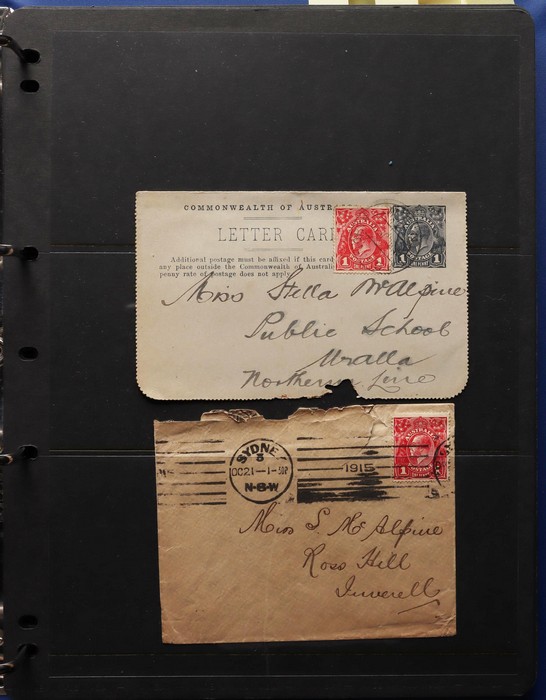 COMMONWEALTH OF AUSTRA
LETTER CARD
Additional postage must be affixed if this card
any place outside the Commonwealth of Australi
penny rate of postage does not apply.
AUSTRALIA
1 POSTAGE 1
ONE PENNY
AUSTRALIA
1 POSTAGE 1
ONE PENNY
Miss Stella McAlpine
Public School
Uralla
Northern Line
SYDNE
3
OC21-1-30P
N·S·W
1915
AUSTRALIA
1 POSTAGE
Miss S. McAlpine
Ross Hill
Inverell